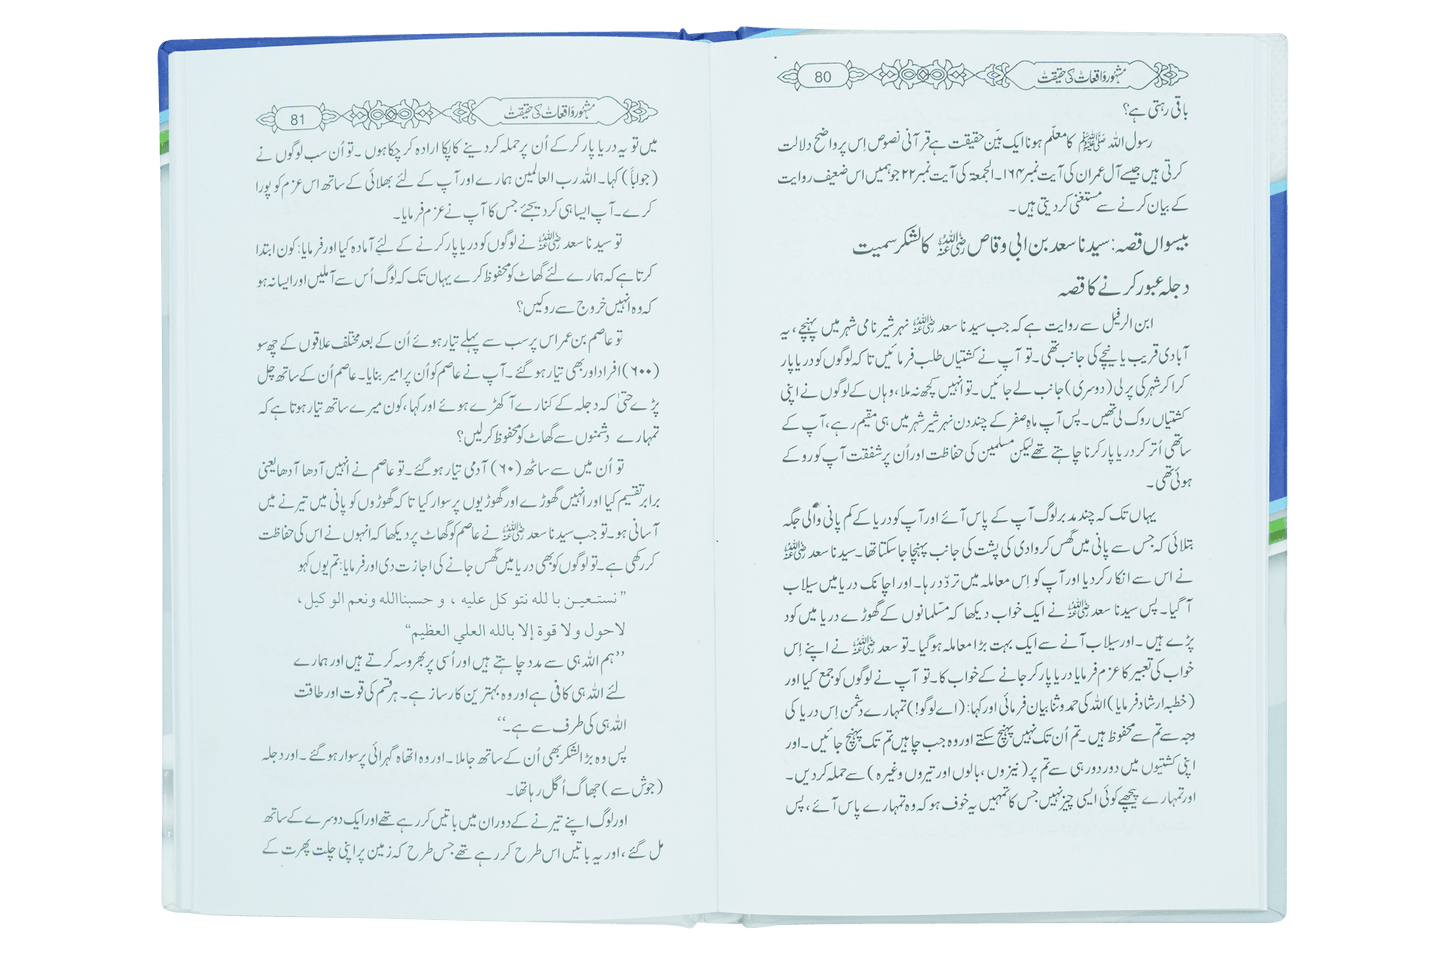 مشہور واقعات کی حقیقت 80
باقی رہتی ہے؟
رسول اللہ ﷺ کا معلّم ہونا ایک بیّن حقیقت ہے قرآنی نصوص اِس پر واضح دلالت
کرتی ہیں جیسے آل عمران کی آیت نمبر ۱۶۴۔ الجمعۃ کی آیت نمبر ۲۲ جو ہمیں اس ضعیف روایت
کے بیان کرنے سے مستغنی کر دیتی ہیں۔
بیسواں قصہ: سیدنا سعد بن ابی وقاص رضی اللہ عنہ کا لشکر سمیت
دجلہ عبور کرنے کا قصہ
ابن الرفیل سے روایت ہے کہ جب سیدنا سعد رضی اللہ عنہ نہر شیر نامی شہر میں پہنچے، یہ
آبادی قریب یا نیچے کی جانب تھی۔ تو آپ نے کشتیاں طلب فرمائیں تاکہ لوگوں کو دریا پار
کرا کر شہر کی پرلی (دوسری) جانب لے جائیں۔ تو انہیں کچھ نہ ملا، وہاں کے لوگوں نے اپنی
کشتیاں روک لی تھیں۔ پس آپ ماہِ صفر کے چند دن نہر شیر شہر میں ہی مقیم رہے، آپ کے
ساتھی اُتر کر دریا پار کرنا چاہتے تھے لیکن مسلمین کی حفاظت اور اُن پر شفقت آپ کو روکے
ہوئی تھی۔
یہاں تک کہ چند مدبر لوگ آپ کے پاس آئے اور آپ کو دریا کے کم پانی والی جگہ
بتلائی کہ جس سے پانی میں گھس کر وادی کی پشت کی جانب پہنچا جا سکتا تھا۔ سیدنا سعد رضی اللہ عنہ
نے اس سے انکار کر دیا اور آپ کو اِس معاملہ میں تردّد رہا۔ اور اچانک دریا میں سیلاب
آ گیا۔ پس سیدنا سعد رضی اللہ عنہ نے ایک خواب دیکھا کہ مسلمانوں کے گھوڑے دریا میں کود
پڑے ہیں۔ اور سیلاب آنے سے ایک بہت بڑا معاملہ ہو گیا۔ تو سعد رضی اللہ عنہ نے اپنے اِس
خواب کی تعبیر کا عزم فرمایا دریا پار کر جانے کے خواب کا۔ تو آپ نے لوگوں کو جمع کیا اور
(خطبہ ارشاد فرمایا) اللہ کی حمد و ثنا بیان فرمائی اور کہا: (اے لوگو!) تمہارے دشمن اِس دریا کی
وجہ سے تم سے محفوظ ہیں۔ تم اُن تک نہیں پہنچ سکتے اور وہ جب چاہیں تم تک پہنچ جائیں۔ اور
اپنی کشتیوں میں دور دور ہی سے تم پر (نیزوں، بالوں اور تیروں وغیرہ) سے حملہ کر دیں۔
اور تمہارے پیچھے کوئی ایسی چیز نہیں جس کا تمہیں یہ خوف ہو کہ وہ تمہارے پاس آئے، پس
مشہور واقعات کی حقیقت 81
میں تو یہ دریا پار کر کے اُن پر حملہ کر دینے کا پکا ارادہ کر چکا ہوں۔ تو اُن سب لوگوں نے
(جواباً) کہا۔ اللہ رب العالمین ہمارے اور آپ کے لئے بھلائی کے ساتھ اس عزم کو پورا
کرے۔ آپ ایسا ہی کر دیجئے جس کا آپ نے عزم فرمایا۔
تو سیدنا سعد رضی اللہ عنہ نے لوگوں کو دریا پار کرنے کے لئے آمادہ کیا اور فرمایا: کون ابتدا
کرتا ہے کہ ہمارے لئے گھاٹ کو محفوظ کرے یہاں تک کہ لوگ اُس سے آملیں اور ایسا نہ ہو
کہ وہ انہیں خروج سے روکیں؟
تو عاصم بن عمر اس پر سب سے پہلے تیار ہوئے اُن کے بعد مختلف علاقوں کے چھ سو
(۶۰۰) افراد اور بھی تیار ہو گئے۔ آپ نے عاصم کو اُن پر امیر بنایا۔ عاصم اُن کے ساتھ چل
پڑے حتیٰ کہ دجلہ کے کنارے آ کھڑے ہوئے اور کہا، کون میرے ساتھ تیار ہوتا ہے کہ
تمہارے دشمنوں سے گھاٹ کو محفوظ کر لیں؟
تو اُن میں سے ساٹھ (۶۰) آدمی تیار ہو گئے۔ تو عاصم نے انہیں آدھا آدھا یعنی
برابر تقسیم کیا اور انہیں گھوڑے اور گھوڑیوں پر سوار کیا تاکہ گھوڑوں کو پانی میں تیرنے میں
آسانی ہو۔ تو جب سیدنا سعد رضی اللہ عنہ نے عاصم کو گھاٹ پر دیکھا کہ انہوں نے اس کی حفاظت
کر رکھی ہے۔ تو لوگوں کو بھی دریا میں گھس جانے کی اجازت دی اور فرمایا: تم یوں کہو
”نستعین باللہ نتوکل علیہ ، و حسبنااللہ ونعم الوکیل،
لاحول ولا قوة إلا باللہ العلي العظیم“
’’ہم اللہ ہی سے مدد چاہتے ہیں اور اُسی پر بھروسہ کرتے ہیں اور ہمارے
لئے اللہ ہی کافی ہے اور وہ بہترین کارساز ہے۔ ہر قسم کی قوت اور طاقت
اللہ ہی کی طرف سے ہے۔‘‘
پس وہ بڑا لشکر بھی اُن کے ساتھ جا ملا۔ اور وہ اتھاہ گہرائی پر سوار ہو گئے۔ اور دجلہ
(جوش سے) جھاگ اُگل رہا تھا۔
اور لوگ اپنے تیرنے کے دوران میں باتیں کر رہے تھے اور ایک دوسرے کے ساتھ
مل گئے، اور یہ باتیں اس طرح کر رہے تھے جس طرح کہ زمین پر اپنی چلت پھرت کے